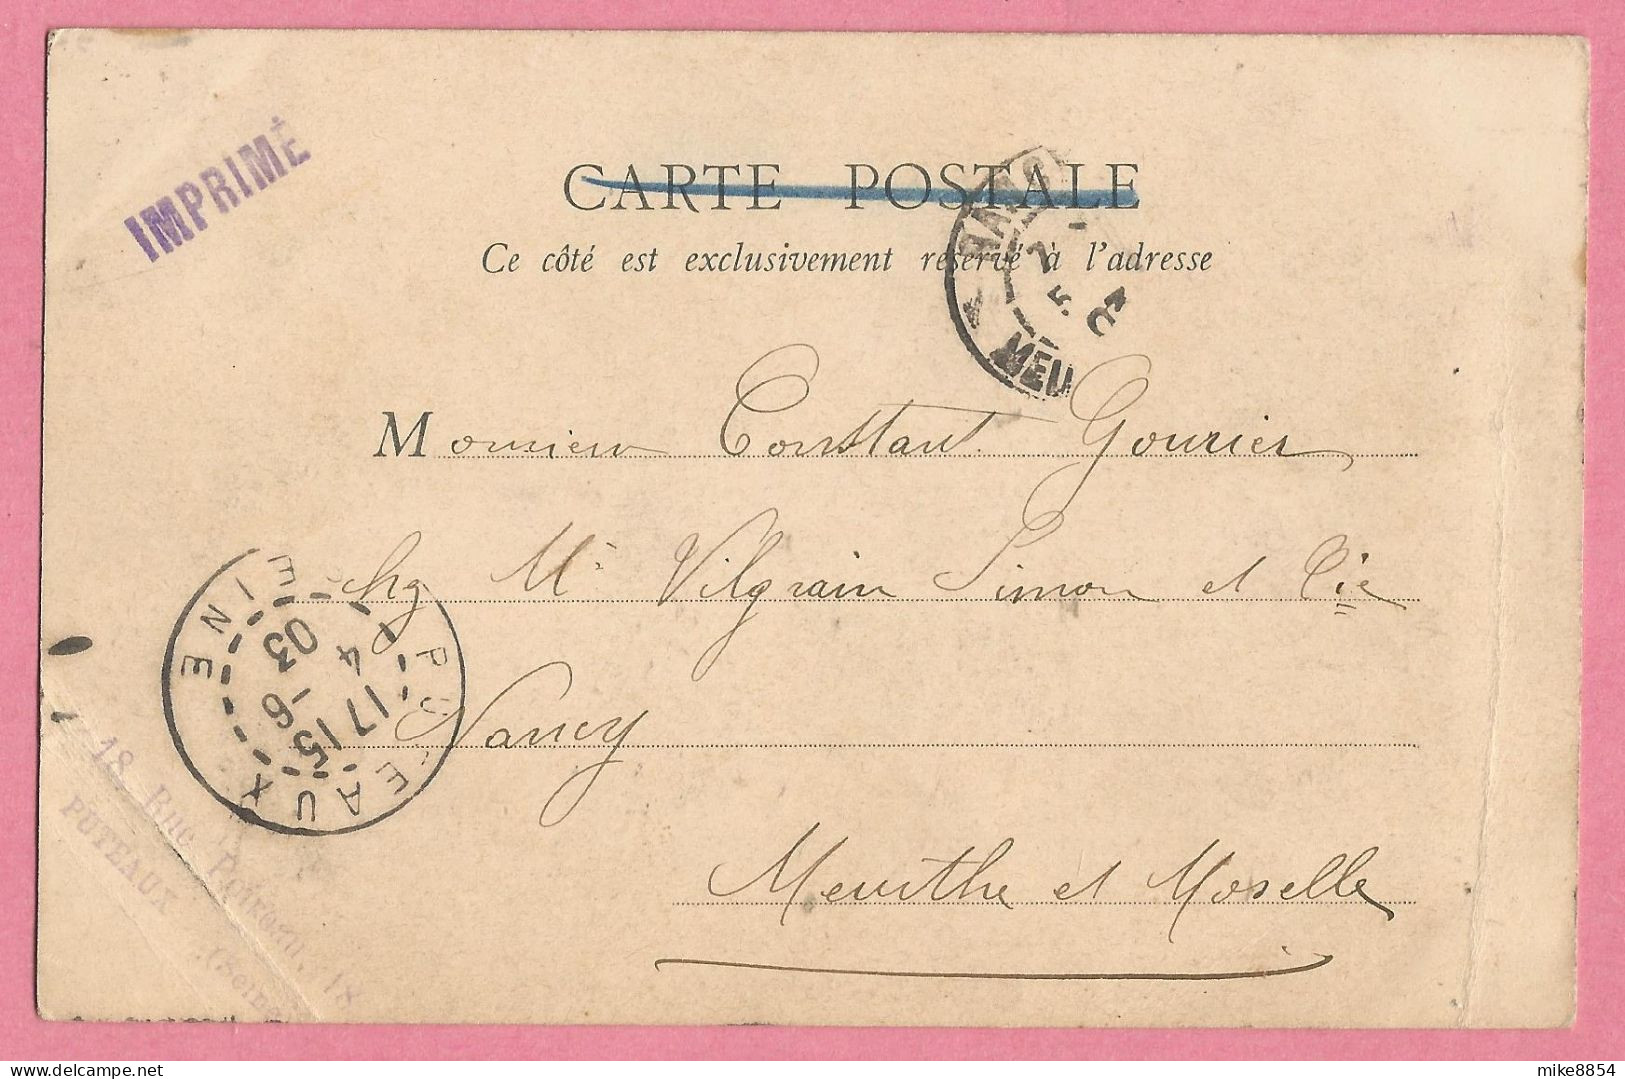 IMPRIMÉ
CARTE POSTALE
Ce côté est exclusivement réservé à l'adresse
NANCY
2
5 04
MEU
Monsieur Constant Gourier
chez Mr Vilgrain Simon et Cie
Nancy
Meurthe et Moselle
PUTEAUX
SEINE
1715
4
-6
03
18, Rue Poireau, 18
PUTEAUX (Seine
mike8854